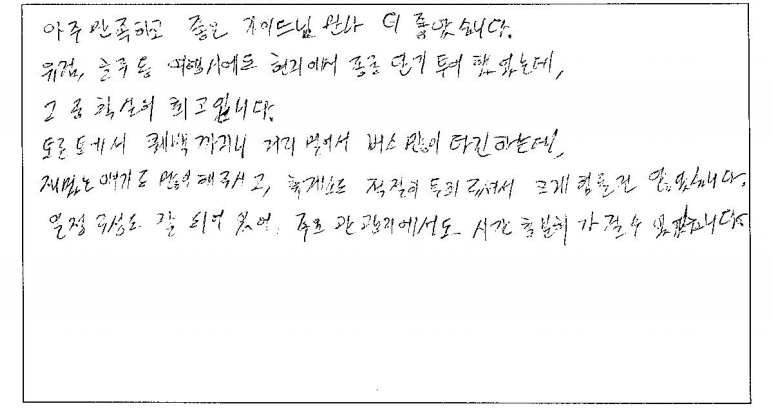 아주 만족하고 좋은 가이드님 만나 더 좋았습니다.
유럽, 호주 등 여행시에도 현지에서 종종 단기 투어 했었는데,
그 중 확실히 최고입니다.
토론토에서 퀘백까지니 거리 멀어서 버스 많이 타긴 하는데,
재밌는 얘기도 많이 해주시고, 휴게소도 적절히 들려서 크게 힘들진 않았습니다.
일정 구성도 잘 되어 있어, 주요 관광지에서도 시간 충분히 가질 수 있었습니다